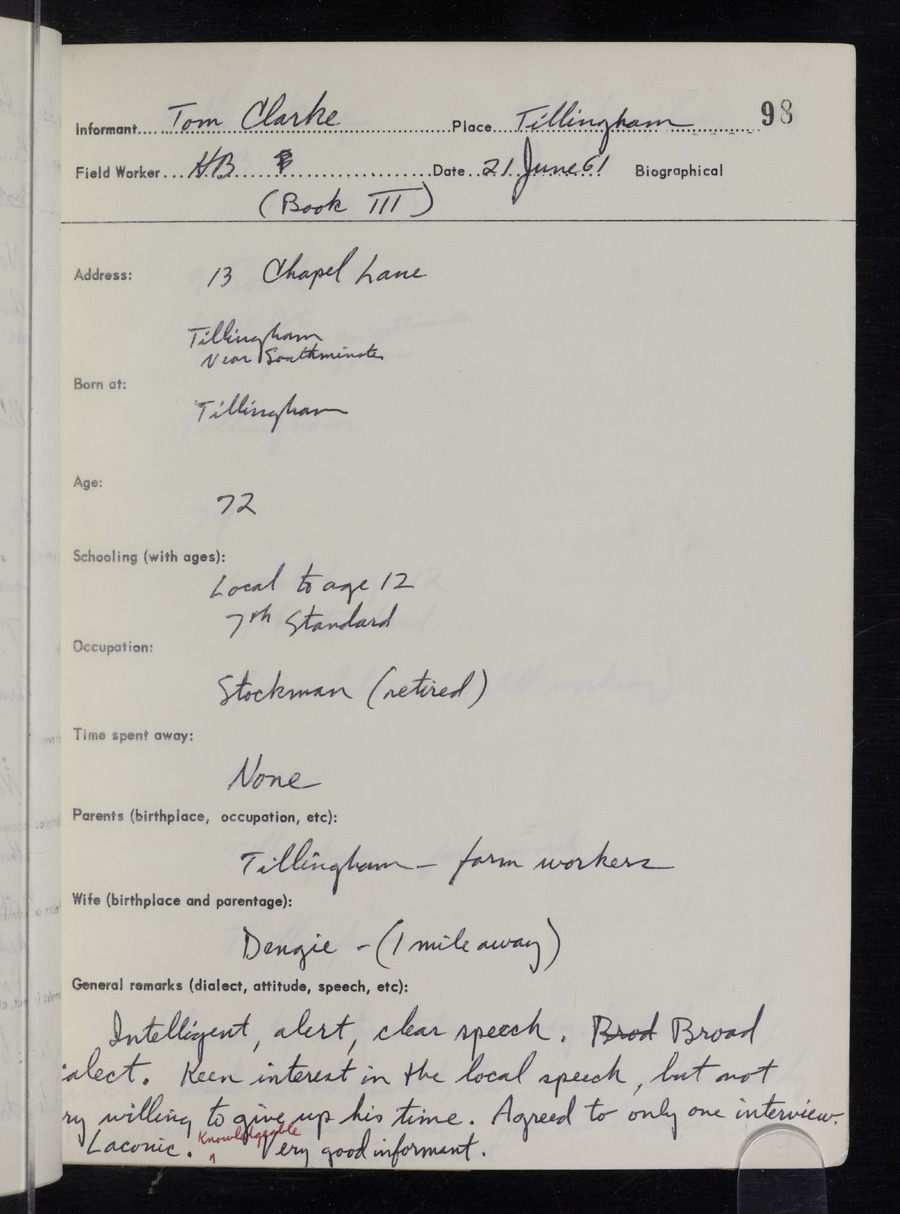 Informant.... Tom Clarke ....Place.... Tillingham .... 98
Field Worker... HB ....Date.. 21 June 61 Biographical
(Book III)
Address: 13 Chapel Lane
Tillingham
Near Southminster
Born at:
Tillingham
Age:
72
Schooling (with ages):
Local to age 12
7th Standard
Occupation:
Stockman (retired)
Time spent away:
None
Parents (birthplace, occupation, etc):
Tillingham — farm workers
Wife (birthplace and parentage):
Dengie - (1 mile away)
General remarks (dialect, attitude, speech, etc):
Intelligent, alert, clear speech. Brod Broad
ialect. Keen interest in the local speech, but not
ry willing to give up his time. Agreed to only one interview.
Laconic. Knowledgeable Very good informant.